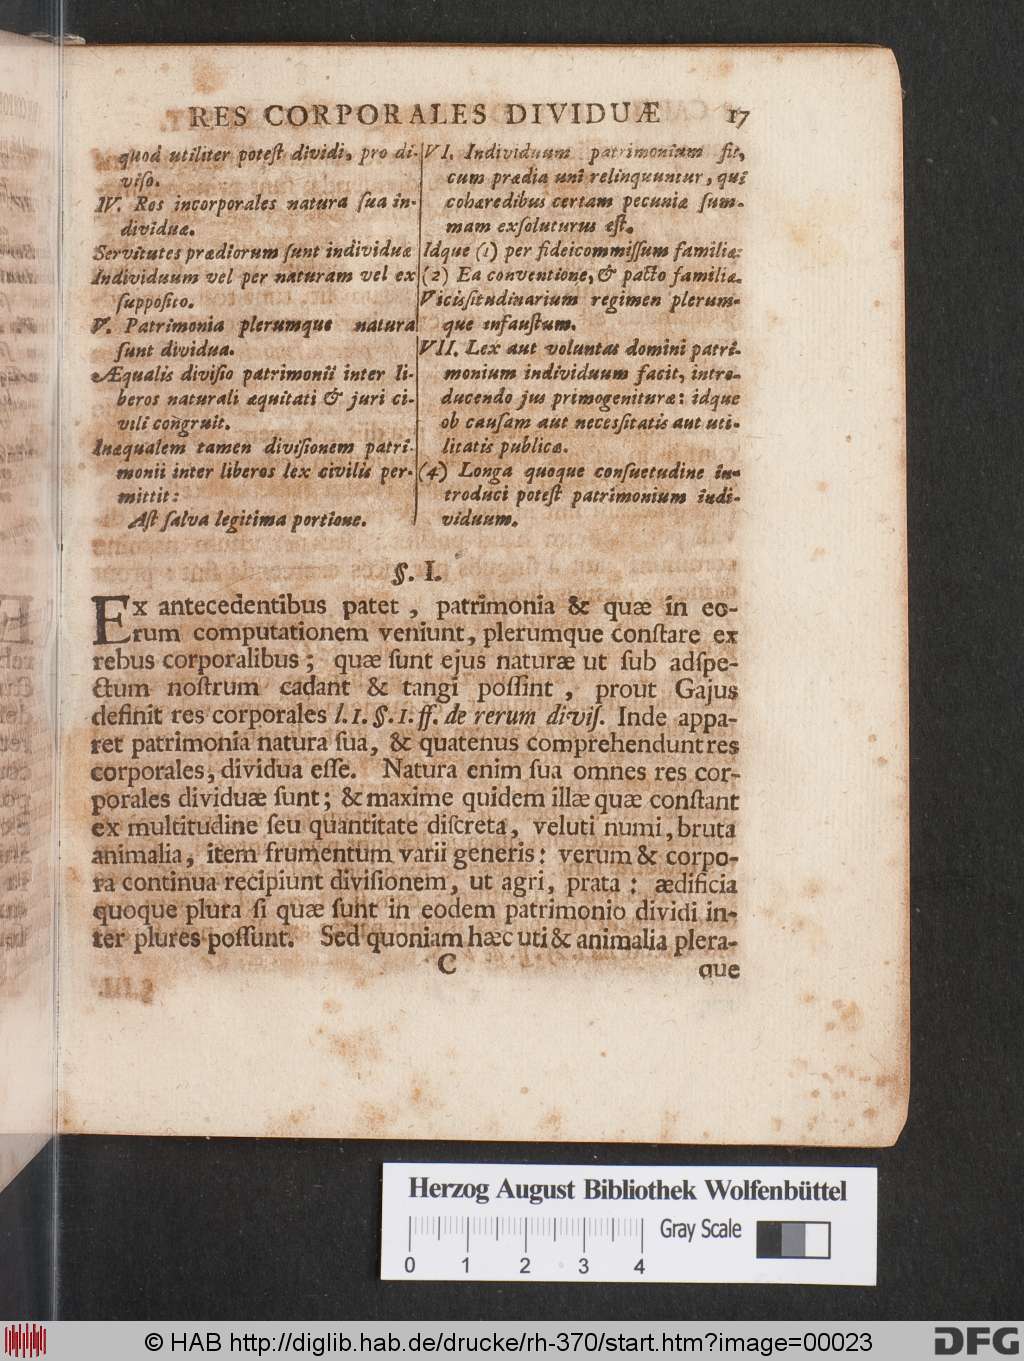 RES CORPORALES DIVIDUÆ 17
quod utiliter poteſt dividi, pro di-
viſo.
IV. Res incorporales natura ſua in-
dividuæ.
Servitutes prædiorum ſunt individuæ
Individuum vel per naturam vel ex
ſuppoſito.
V. Patrimonia plerumque natura
ſunt dividua.
Æqualis diviſio patrimonii inter li-
beros naturali æquitati & juri ci-
vili congruit.
Inæqualem tamen diviſionem patri-
monii inter liberos lex civilis per-
mittit:
Aſt ſalva legitima portione.
VI. Individuum patrimonium fit,
cum prædia uni relinquuntur, qui
cohæredibus certam pecuniæ ſum-
mam exſoluturus eſt.
Idque (1) per fideicommiſſum familiæ:
(2) Ea conventione, & pacto familiæ.
Viciſſitudinarium regimen plerum-
que infauſtum.
VII. Lex aut voluntas domini patri-
monium individuum facit, intro-
ducendo jus primogenituræ: idque
ob cauſam aut neceſſitatis aut uti-
litatis publicæ.
(4) Longa quoque conſuetudine in-
troduci poteſt patrimonium indi-
viduum.
§. I.
Ex antecedentibus patet, patrimonia & quæ in eo-
rum computationem veniunt, plerumque conſtare ex
rebus corporalibus; quæ ſunt ejus naturæ ut ſub adſpe-
ctum noſtrum cadant & tangi poſſint, prout Gajus
definit res corporales l. 1. §. 1. ff. de rerum diviſ. Inde appa-
ret patrimonia natura ſua, & quatenus comprehendunt res
corporales, dividua eſſe. Natura enim ſua omnes res cor-
porales dividuæ ſunt; & maxime quidem illæ quæ conſtant
ex multitudine ſeu quantitate diſcreta, veluti numi, bruta
animalia, item frumentum varii generis: verum & corpo-
ra continua recipiunt diviſionem, ut agri, prata: ædificia
quoque plura ſi quæ ſunt in eodem patrimonio dividi in-
ter plures poſſunt. Sed quoniam hæc uti & animalia plera-
C que
Herzog August Bibliothek Wolfenbüttel
Gray Scale
0 1 2 3 4
© HAB http://diglib.hab.de/drucke/rh-370/start.htm?image=00023
DFG